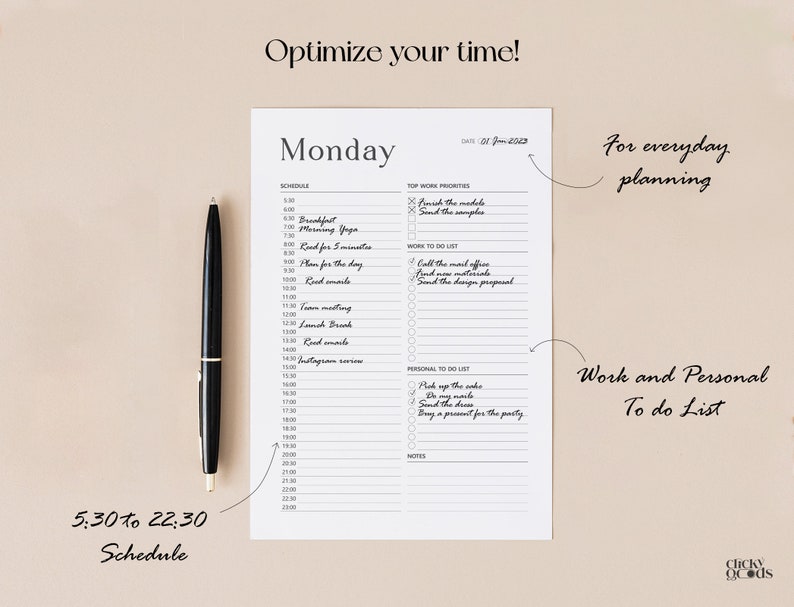 Optimize your time!
Monday
DATE 01 Jan 2023
For everyday
planning
SCHEDULE
5:30
6:00
6:30 Breakfast
7:00 Morning Yoga
7:30
8:00 Reed for 5 minutes
8:30
9:00 Plan for the day
9:30
10:00 Reed emails
10:30
11:00
11:30 Team meeting
12:00
12:30 Lunch Break
13:00
13:30 Reed emails
14:00
14:30 Instagram review
15:00
15:30
16:00
16:30
17:00
17:30
18:00
18:30
19:00
19:30
20:00
20:30
21:00
21:30
22:00
22:30
23:00
TOP WORK PRIORITIES
Finish the models
Send the samples
WORK TO DO LIST
Call the mail office
Find new materials
Send the design proposal
PERSONAL TO DO LIST
Pick up the cake
Do my nails
Send the dress
Buy a present for the party
NOTES
Work and Personal
To do List
5:30 to 22:30
Schedule
clicky
goods